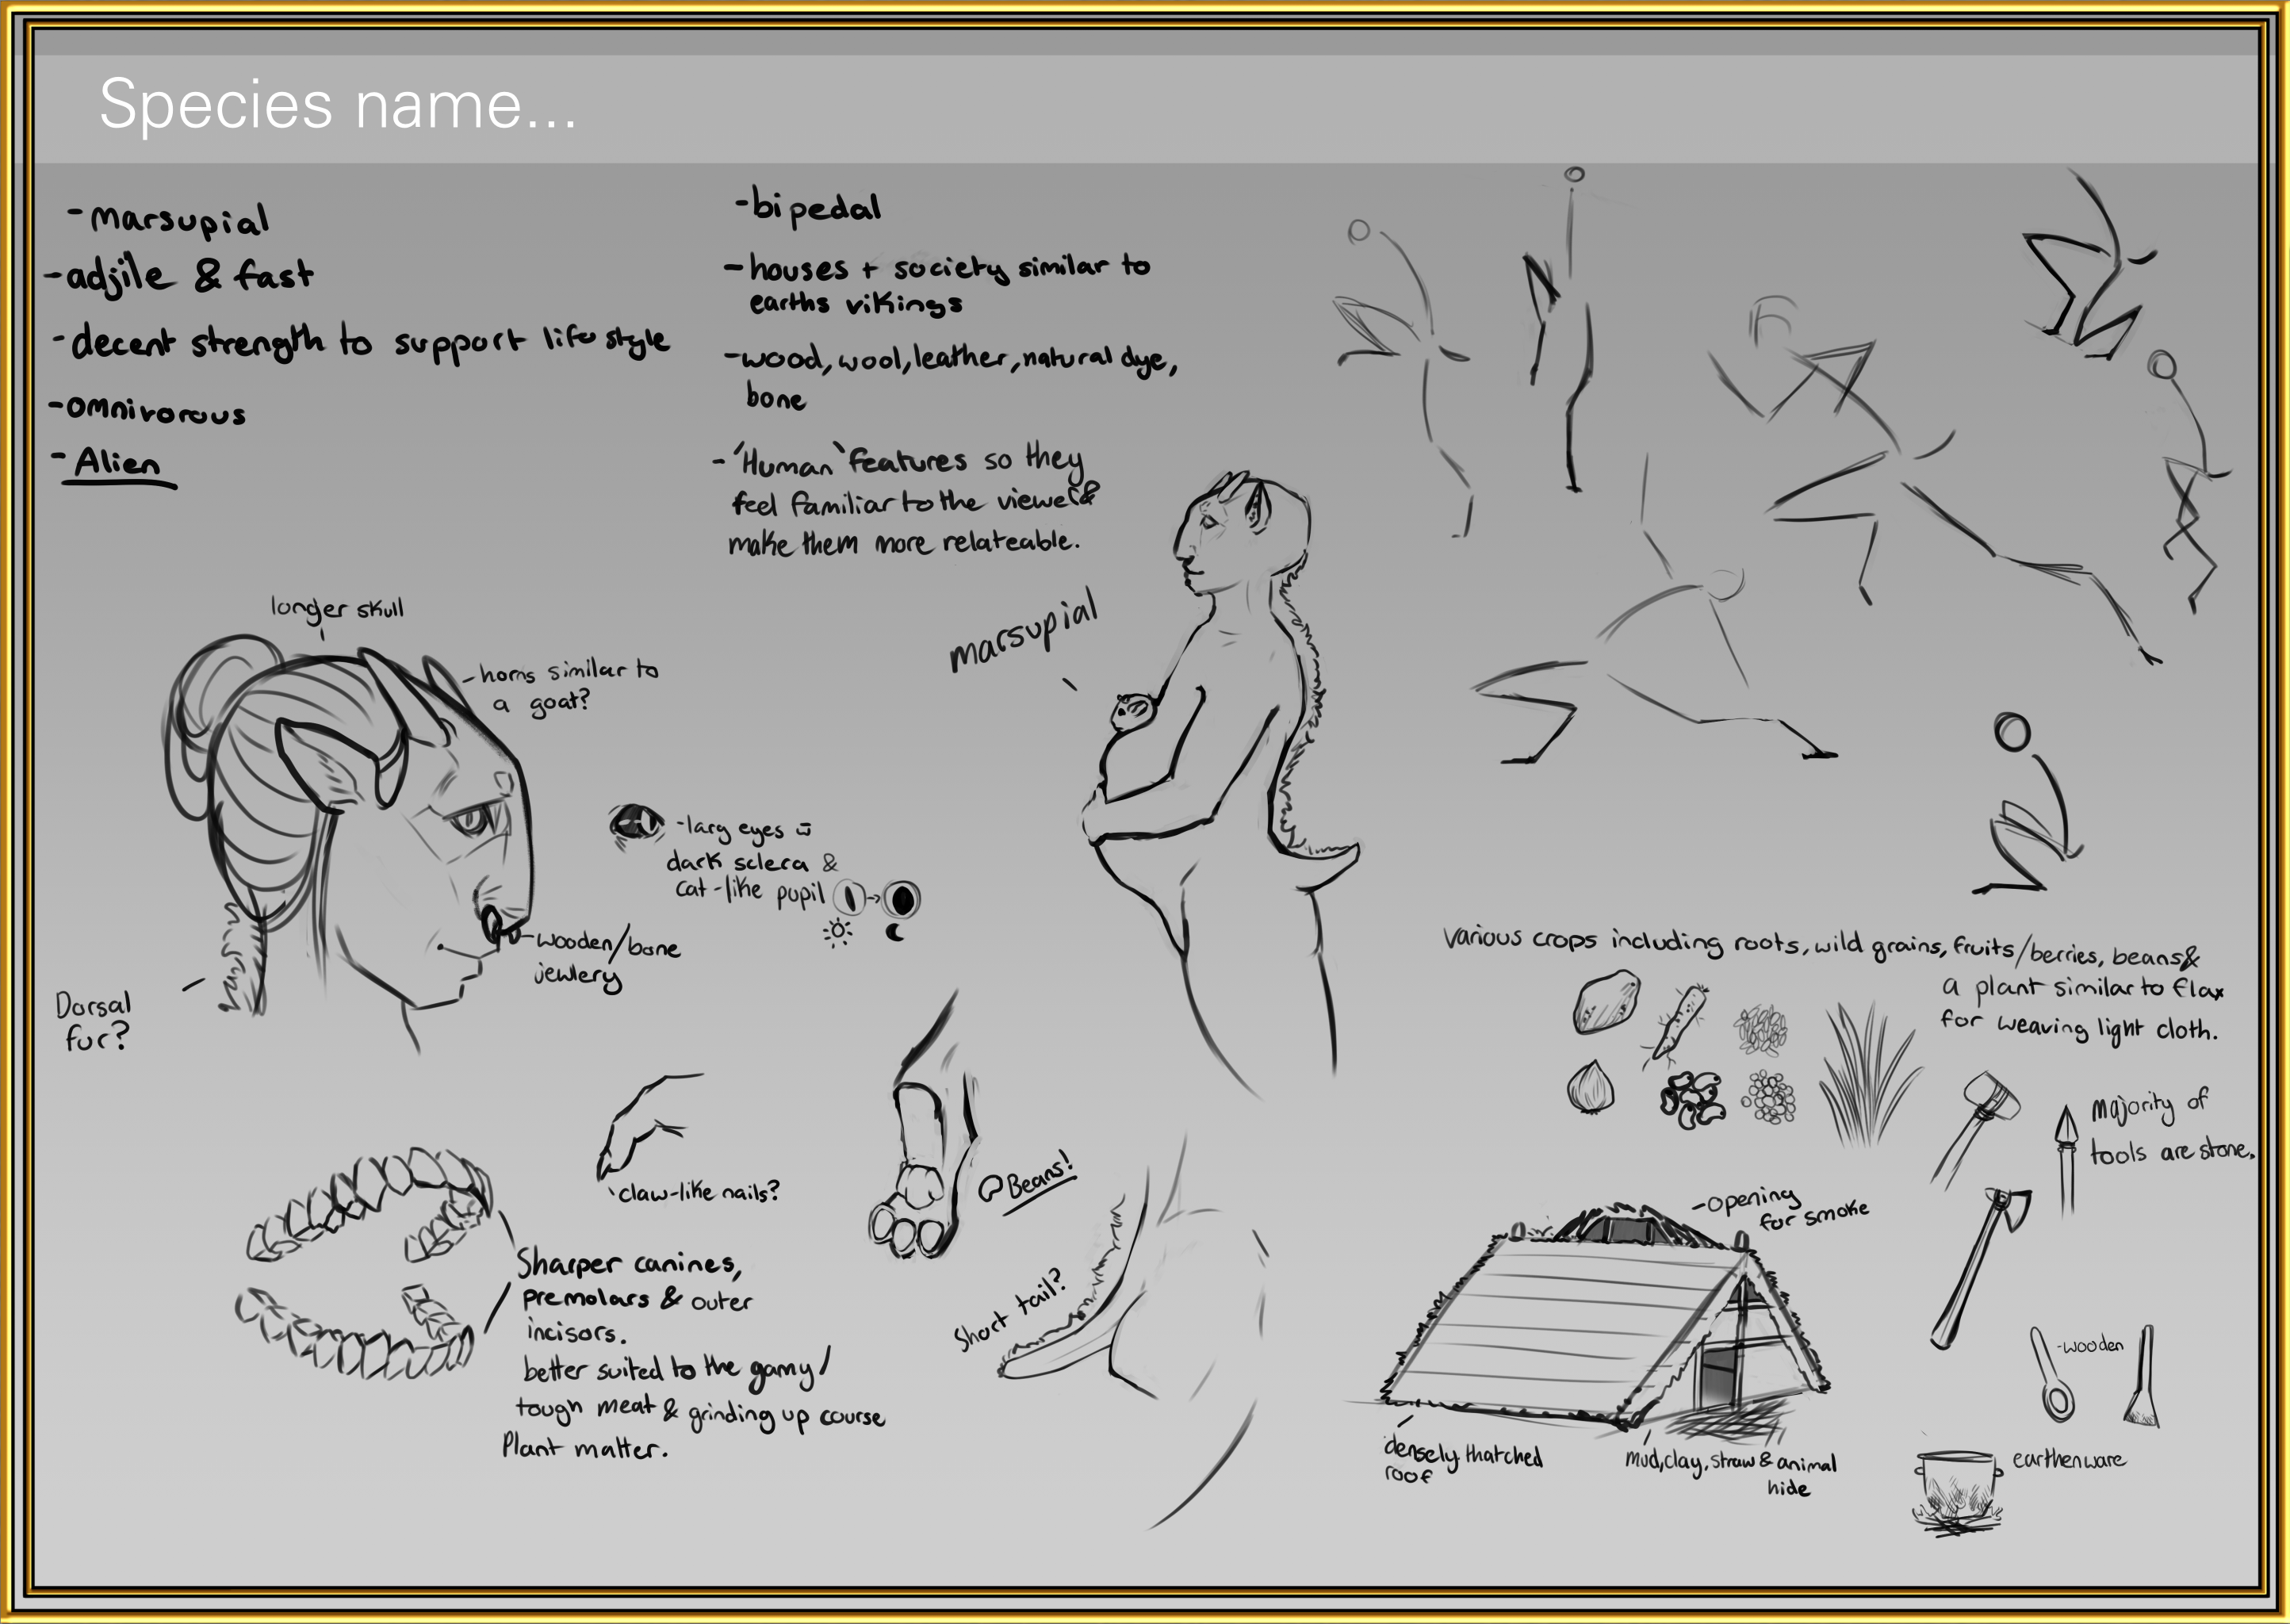 Species name...
-marsupial
-adjile & fast
-decent strength to support life style
-omnivorous
-Alien
-bipedal
-houses + society similar to
earths vikings
-wood, wool, leather, natural dye,
bone
-'Human' features so they
feel familiar to the viewer &
make them more relateable.
longer skull
-horns similar to
a goat?
-larg eyes
dark sclera &
cat-like pupil
-wooden/bone
jewlery
Dorsal
fur?
marsupial
claw-like nails?
Beans!
Short tail?
Sharper canines,
premolars & outer
incisors.
better suited to the gamy/
tough meat & grinding up course
Plant matter.
Various crops including roots, wild grains, fruits/berries, beans &
a plant similar to flax
for weaving light cloth.
majority of
tools are stone.
-opening
for smoke
-wooden
densely thatched
roof
mud, clay, straw & animal
hide
earthenware